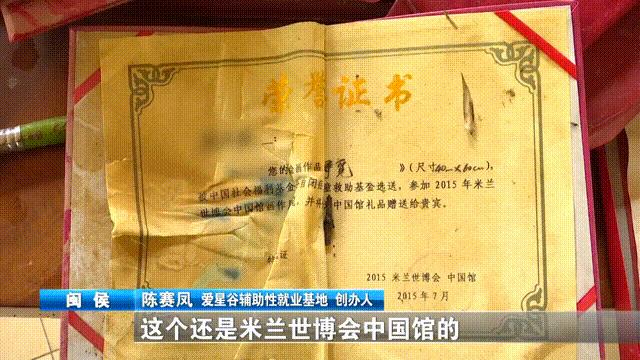 荣誉证书
您的绘画作品
》(尺寸40cm×60cm),
被中国社会福利基金
救助基金选送,参加2015年米兰
世博会中国馆画作展,并将
中国馆礼品赠送给贵宾。
证
2015 米兰世博会 中国馆
2015年7月
闽侯 陈赛凤 爱星谷辅助性就业基地 创办人
这个还是米兰世博会中国馆的